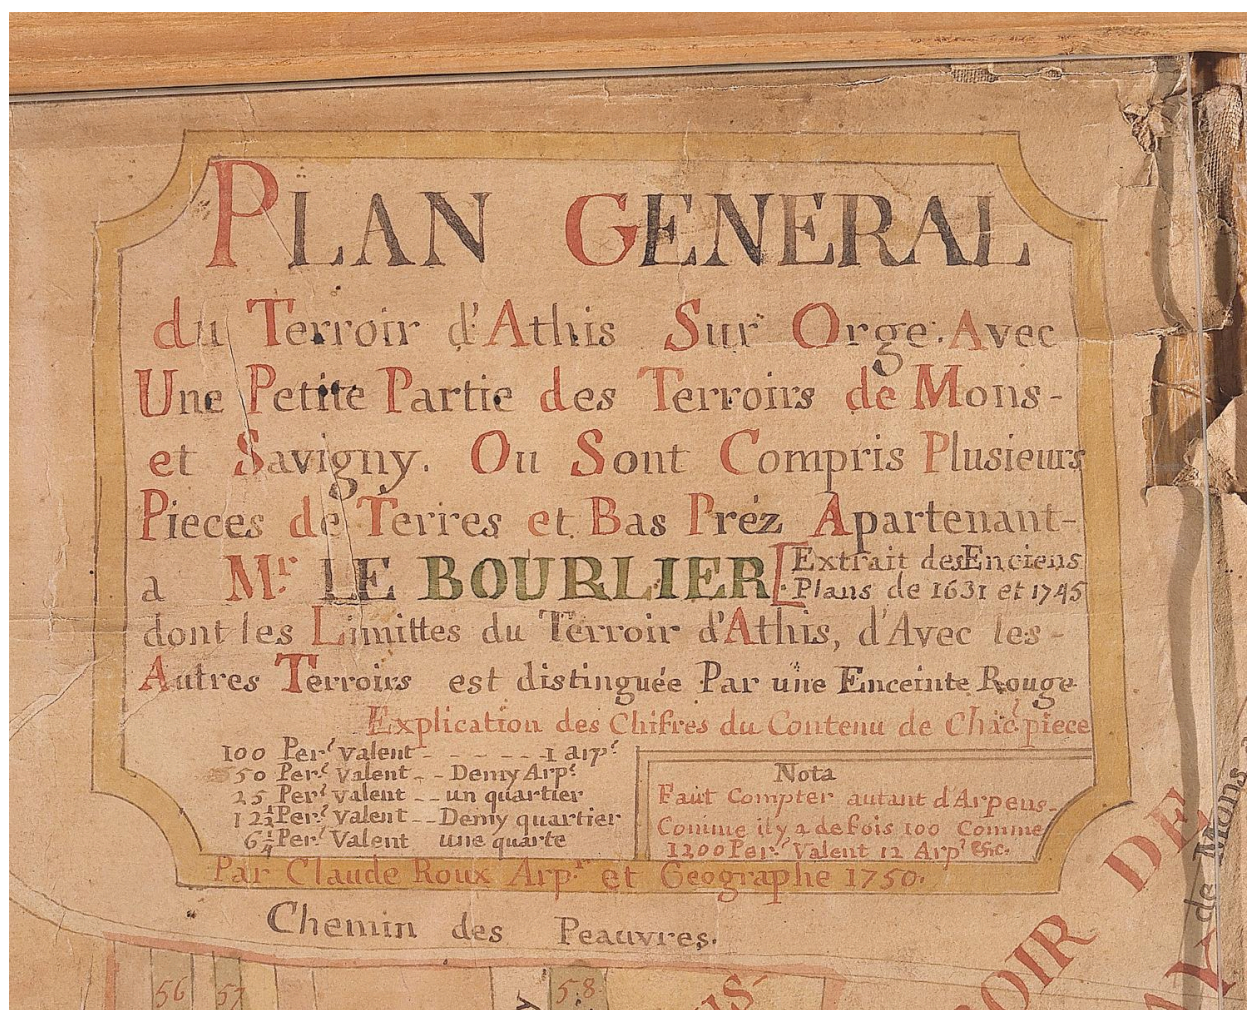 PLAN GENERAL
du Terroir d'Athis Sur Orge. Avec
Une Petite Partie des Terroirs de Mons-
et Savigny. Ou Sont Compris Plusieurs
Pieces de Terres et Bas Préz Apartenant-
a Mr. LE BOURLIER [Extrait desEnciens
Plans de 1631 et 1745
dont les Limittes du Terroir d'Athis, d'Avec les-
Autres Terroirs est distinguée Par une Enceinte Rouge
Explication des Chifres du Contenu de Chac. piece
100 Per. valent - - - - - 1 arp.
50 Per. Valent - - Demy Arp.
25 Per. valent - - un quartier
12 1/2 Per. valent - - Demy quartier
6 1/4 Per. Valent une quarte
Nota
Faut Compter autant d'Arpens-
Comme il y a de fois 100 Comme
1200 Per. Valent 12 Arp. &c.
Par Claude Roux Arp.r et Geographe 1750.
Chemin des Peauvres.
56 57 58
DE
de Mons
OIR